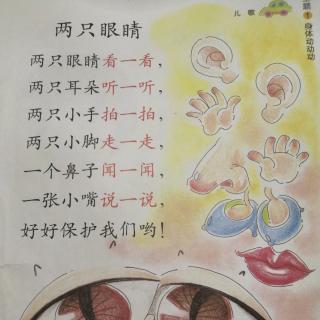 儿歌
主题1 身体动动动
两只眼睛
两只眼睛看一看，
两只耳朵听一听，
两只小手拍一拍，
两只小脚走一走，
一个鼻子闻一闻，
一张小嘴说一说，
好好保护我们哟！